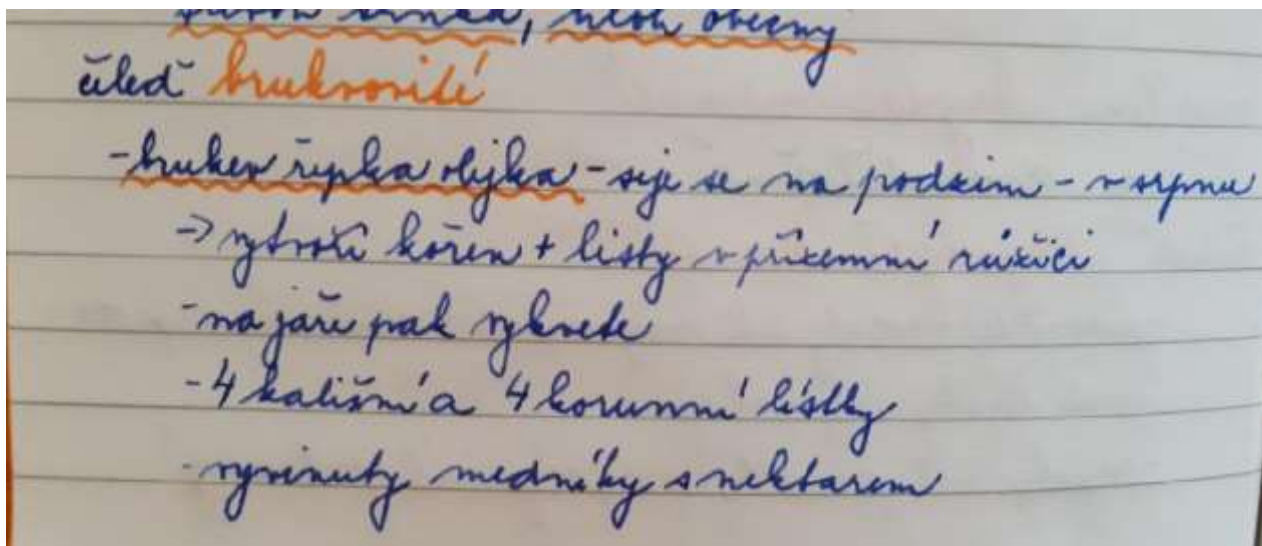 obecný
čeleď brukvovité
- brukev řepka olejka - seje se na podzim - v srpnu
-> vytvoří kořen + listy v přízemní růžici
- na jaře pak vykvete
- 4 kališní a 4 korunní lístky
- vyvinuty medníky s nektarem